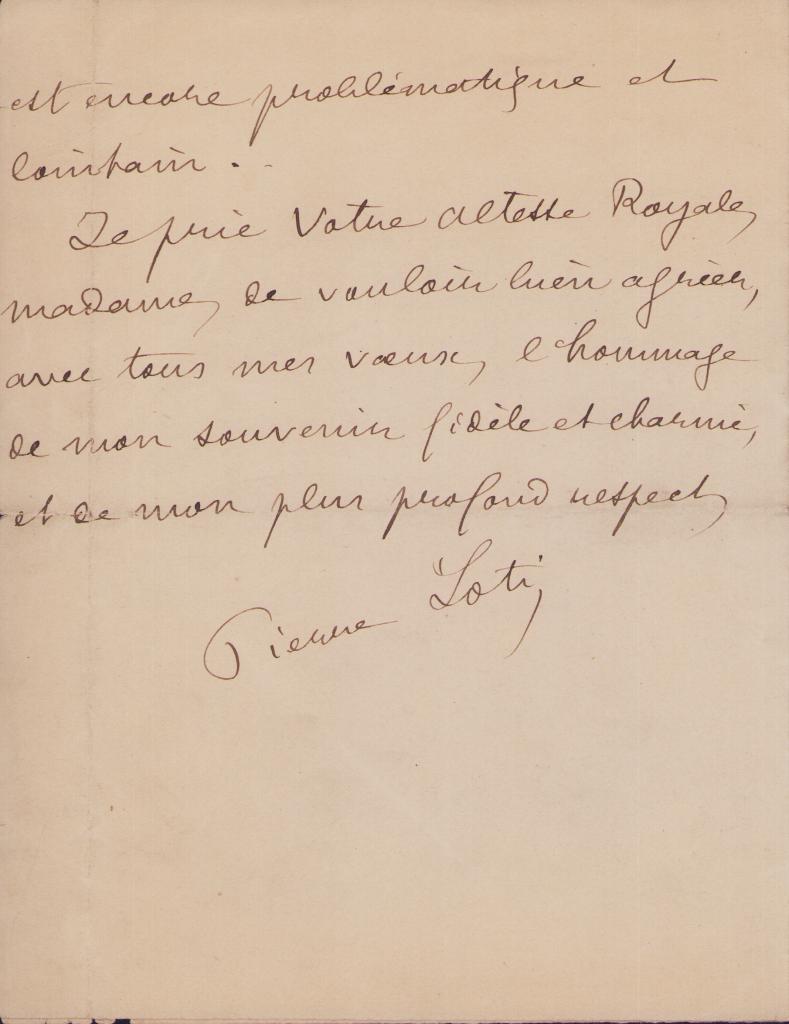 est encore problématique et
lointain . .
Je prie Votre Altesse Royale,
madame, de vouloir bien agréer,
avec tous mes vœux, l'hommage
de mon souvenir fidèle et charmé,
et de mon plus profond respect,
Pierre Loti